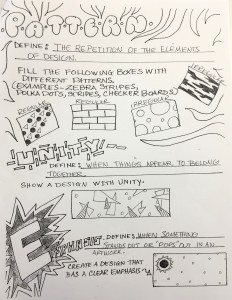 PATTERN
DEFINE: THE REPETITION OF THE ELEMENTS
OF DESIGN.
FILL THE FOLLOWING BOXES WITH
DIFFERENT PATTERNS.
(EXAMPLES - ZEBRA STRIPES,
POLKA DOTS, STRIPES, CHECKER BOARDS)
IRREGULAR
REGULAR
REGULAR
IRREGULAR
UNITY
DEFINE: WHEN THINGS APPEAR TO BELONG
TOGETHER
SHOW A DESIGN WITH UNITY.
EMPHASIS, DEFINE: WHEN SOMETHING
STANDS OUT OR "POPS" OUT IN AN
ARTWORK.
CREATE A DESIGN THAT
HAS A CLEAR EMPHASIS